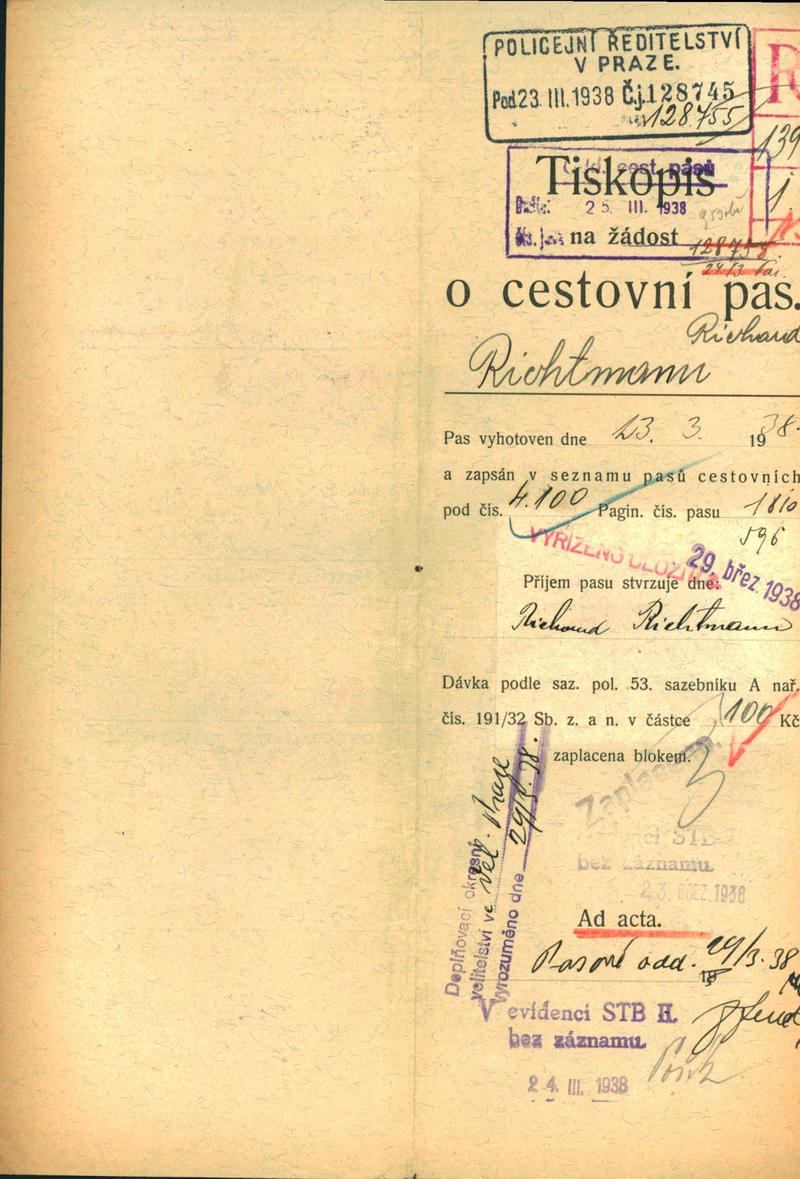 POLICEJNÍ ŘEDITELSTVÍ
V PRAZE.
Pod. 23 III. 1938 Č.j. 128745
128.755
R
139
1.
cest. pasů
Tiskopis
25 III. 1938
na žádost
128755
o cestovní pas.
Richard
Richtmann
Pas vyhotoven dne 23. 3. 1938.
a zapsán v seznamu pasů cestovních
pod čís. 4.100 Pagin. čís. pasu 1810
596
VYŘÍZENO ULOŽIT
29. břez. 1938
Příjem pasu stvrzuje dne:
Richard Richtmann
Dávka podle saz. pol. 53. sazebníku A nař.
čís. 191/32 Sb. z. a n. v částce 100 Kč
zaplacena blokem.
Zaplaceno.
Doplňovací okresní
velitelství ve vel. Praze
vyrozuměno dne 29/3. 38.
evidenci STB
bez záznamu.
23. BŘEZ. 1938
Ad acta.
Pasové odd. 29/3. 38
V evidenci STB II.
bez záznamu.
24. III. 1938